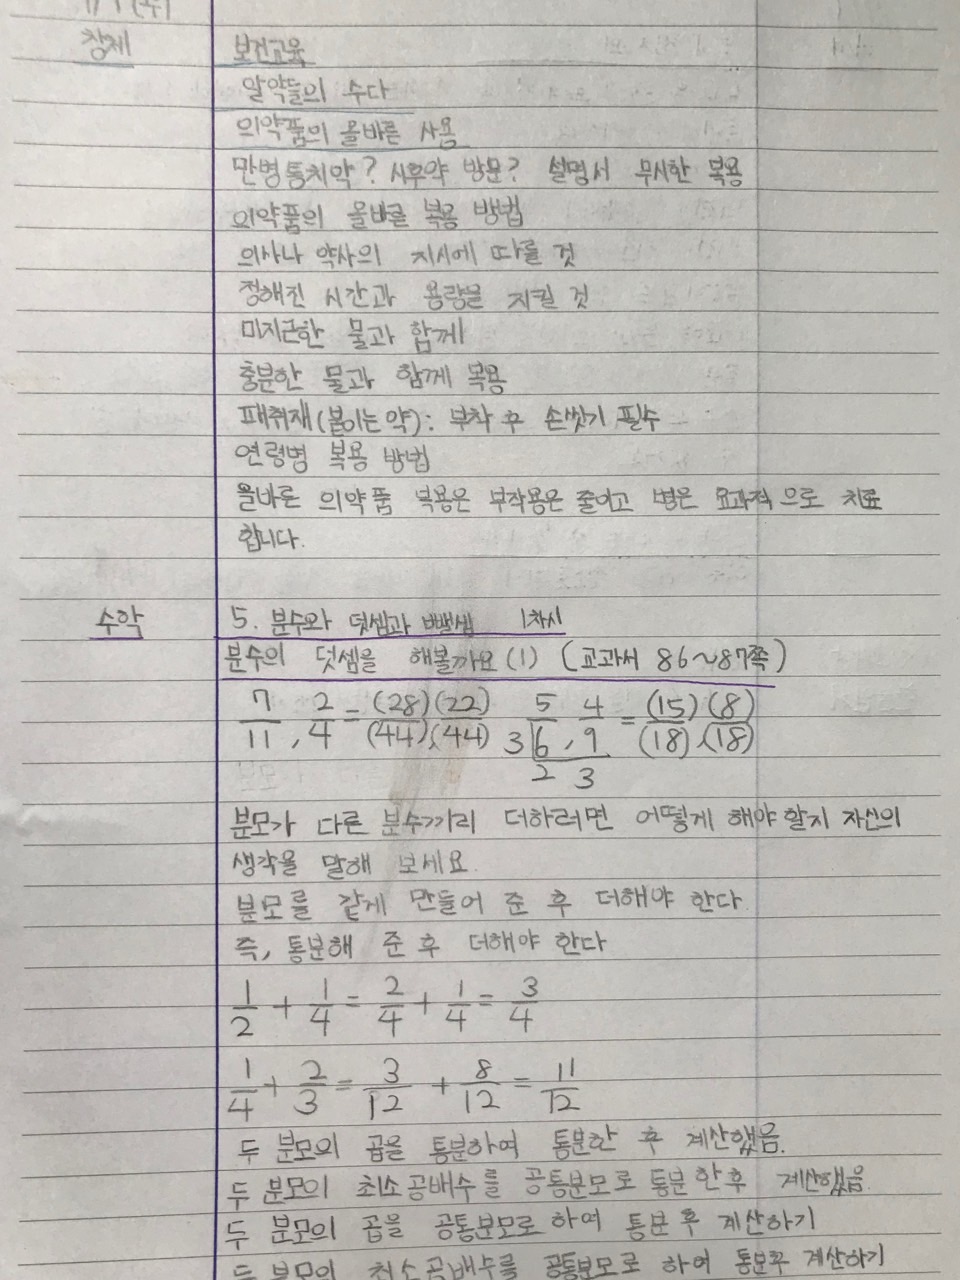 창체
보건교육
알약들의 수다
의약품의 올바른 사용
만병통치약? 사후약 방문? 설명서 무시한 복용
의약품의 올바른 복용 방법
의사나 약사의 지시에 따를 것
정해진 시간과 용량을 지킬 것
미지근한 물과 함께
충분한 물과 함께 복용
패취재(붙이는 약): 부착 후 손씻기 필수
연령병 복용 방법
올바른 의약품 복용은 부작용은 줄이고 병은 효과적으로 치료
합니다.
수학
5. 분수와 덧셈과 뺄셈 1차시
분수의 덧셈을 해볼까요 (1) (교과서 86~87쪽)
7/11, 2/4 = (28)/(44), (22)/(44) 3 5/6, 4/9 = (15)/(18), (8)/(18)
2 3
분모가 다른 분수끼리 더하려면 어떻게 해야 할지 자신의
생각을 말해 보세요.
분모를 같게 만들어 준 후 더해야 한다.
즉, 통분해 준 후 더해야 한다
1/2 + 1/4 = 2/4 + 1/4 = 3/4
1/4 + 2/3 = 3/12 + 8/12 = 11/12
두 분모의 곱을 통분하여 통분한 후 계산했음.
두 분모의 최소공배수를 공통분모로 통분한 후 계산했음.
두 분모의 곱을 공통분모로 하여 통분 후 계산하기
두 분모의 최소공배수를 공통분모로 하여 통분후 계산하기